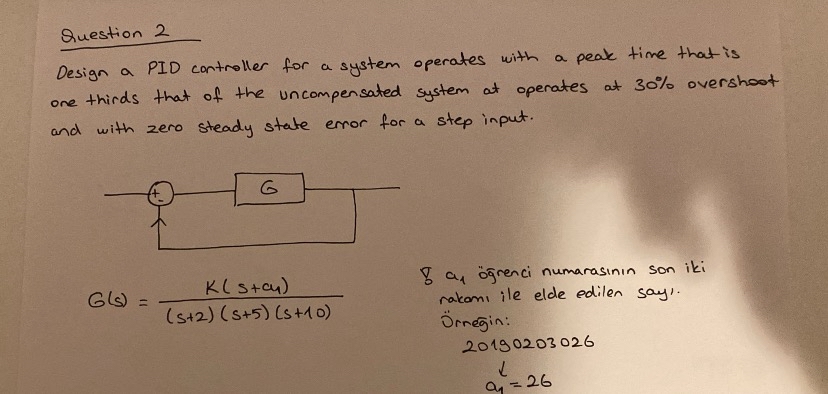 Question 2
Design a PID controller for a system operates with a peak time that is
one thirds that of the uncompensated system at operates at 30% overshoot
and with zero steady state error for a step input.
+
-
G
G(s) = K(s+a1) / (s+2)(s+5)(s+10)
a1 öğrenci numarasının son iki
rakamı ile elde edilen sayı.
Örneğin:
20190203026
↓
a1 = 26